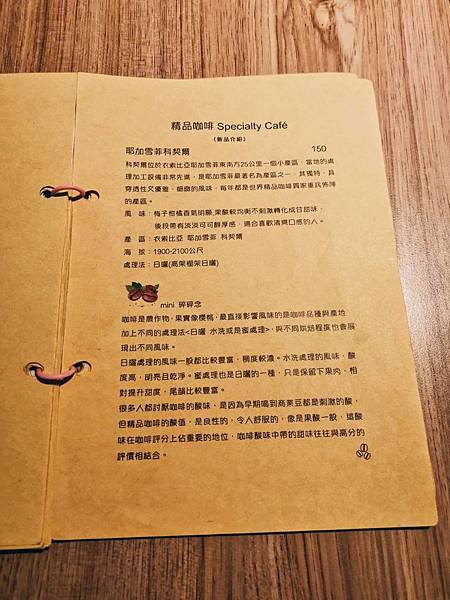 精品咖啡 Specialty Café
(新品介紹)
耶加雪菲科契爾 150
科契爾位於衣索比亞耶加雪菲東南方25公里一個小產區，當地的處
理加工設備非常先進，是耶加雪菲最著名為產區之一，其獨特，具
穿透性又優雅、細緻的風味，每年都是世界精品咖啡買家重兵佈陣
的產區。
風 味：梅子柑橘香氣明顯,果酸較均衡不刺激轉化成甘甜味，
後段帶有淡淡可可醇厚感，適合喜歡清爽口感的人。
產 區：衣索比亞 耶加雪菲 科契爾
海 拔：1900-2100公尺
處理法：日曬(高架棚架日曬)
mini 碎碎念
咖啡是農作物，果實像櫻桃，最直接影響風味的是咖啡品種與產地
加上不同的處理法<日曬 水洗或是蜜處理>，與不同烘焙程度也會展
現出不同風味。
日曬處理的風味一般都比較豐富，稠度較濃。水洗處理的風味，酸
度高，明亮且乾淨。蜜處理也是日曬的一種，只是保留下果肉，相
對提升甜度，尾韻比較豐富。
很多人都討厭咖啡的酸味、是因為早期喝到商業豆都是刺激的酸，
但精品咖啡的酸值，是良性的，令人舒服的，像是果酸一般，這酸
味在咖啡評分上佔重要的地位，咖啡酸味中帶的甜味往往與高分的
評價相結合。